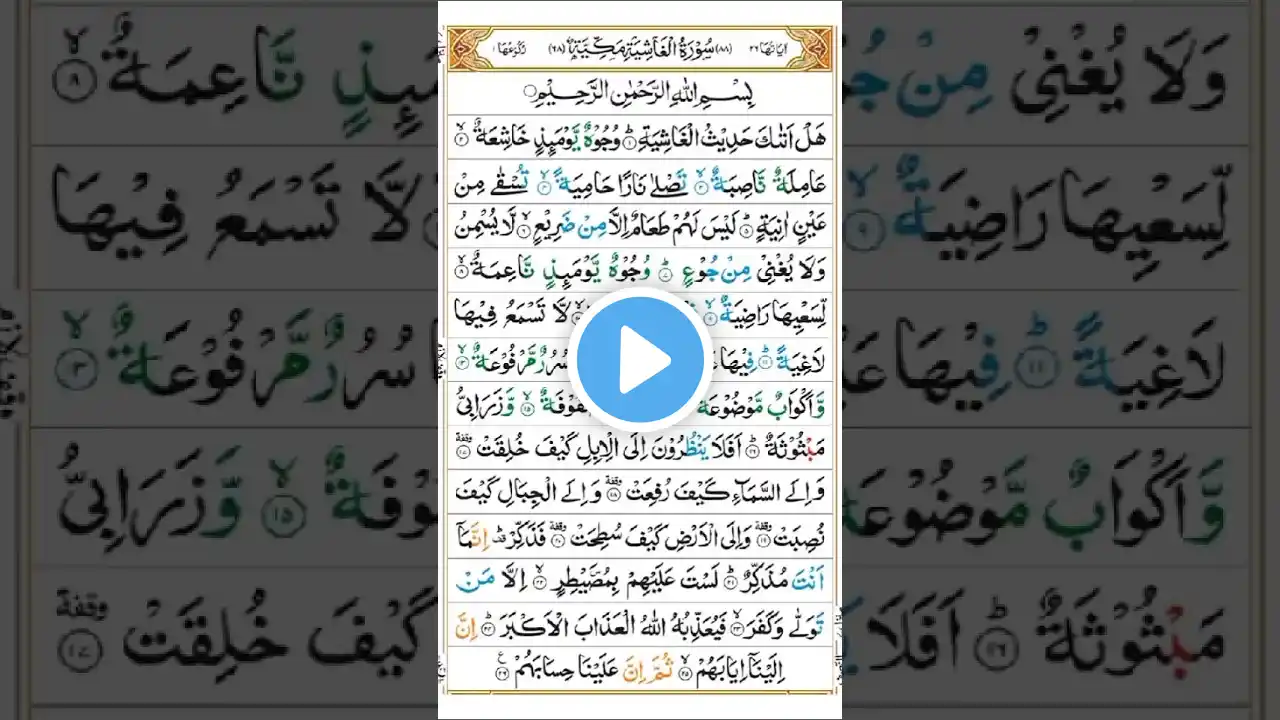 اٰيَاتُهَا ٢٦ (٨٨) سُوْرَةُ الْغَاشِيَةِ مَكِّيَّةٌ (٦٨) رُكُوْعُهَا ١
بِسْمِ اللّٰهِ الرَّحْمٰنِ الرَّحِيْمِ
هَلْ اَتٰىكَ حَدِيْثُ الْغَاشِيَةِ ؕ﴿۱﴾ وُجُوْهٌ يَّوْمَىِٕذٍ خَاشِعَةٌ ۙ﴿۲﴾
عَامِلَةٌ نَّاصِبَةٌ ۙ﴿۳﴾ تَصْلٰى نَارًا حَامِيَةً ۙ﴿۴﴾ تُسْقٰى مِنْ
عَيْنٍ اٰنِيَةٍ ؕ﴿۵﴾ لَيْسَ لَهُمْ طَعَامٌ اِلَّا مِنْ ضَرِيْعٍ ۙ﴿۶﴾ لَّا يُسْمِنُ
وَلَا يُغْنِيْ مِنْ جُوْعٍ ؕ﴿۷﴾ وُجُوْهٌ يَّوْمَىِٕذٍ نَّاعِمَةٌ ۙ﴿۸﴾
لِّسَعْيِهَا رَاضِيَةٌ ۙ﴿۹﴾ لَّا تَسْمَعُ فِيْهَا
لَاغِيَةً ؕ﴿۱۱﴾ فِيْهَا سُرُرٌ مَّرْفُوْعَةٌ ۙ﴿۱۳﴾
وَّاَكْوَابٌ مَّوْضُوْعَةٌ ﴿۱۵﴾ وَّزَرَابِيُّ
مَبْثُوْثَةٌ ؕ﴿۱۶﴾ اَفَلَا يَنْظُرُوْنَ اِلَى الْاِبِلِ كَيْفَ خُلِقَتْ وقفة﴿۱۷﴾
وَاِلَى السَّمَآءِ كَيْفَ رُفِعَتْ وقفة﴿۱۸﴾ وَاِلَى الْجِبَالِ كَيْفَ
نُصِبَتْ وقفة﴿۱۹﴾ وَاِلَى الْاَرْضِ كَيْفَ سُطِحَتْ وقفة﴿۲۰﴾ فَذَكِّرْ ؕ اِنَّمَاۤ
اَنْتَ مُذَكِّرٌ ؕ﴿۲۱﴾ لَسْتَ عَلَيْهِمْ بِمُصَۜيْطِرٍ ۙ﴿۲۲﴾ اِلَّا مَنْ
تَوَلّٰى وَكَفَرَ ۙ﴿۲۳﴾ فَيُعَذِّبُهُ اللّٰهُ الْعَذَابَ الْاَكْبَرَ ؕ﴿۲۴﴾ اِنَّ
اِلَيْنَاۤ اِيَابَهُمْ ۙ﴿۲۵﴾ ثُمَّ اِنَّ عَلَيْنَا حِسَابَهُمْ ﴿۲۶﴾